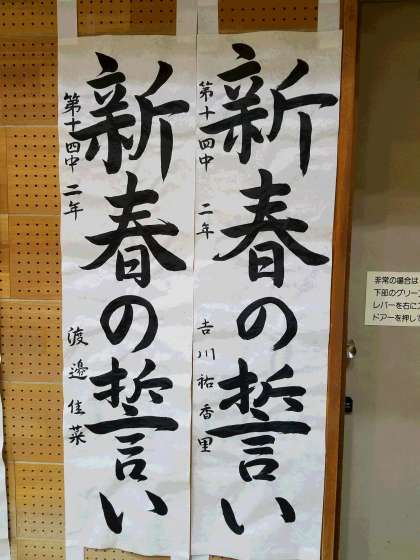 新春の誓い
第十四中 二年 吉川祐香里
新春の誓い
第十四中 二年 渡邉佳菜
非常の場合は
下部のグリーン
レバーを右に
ドアーを押して